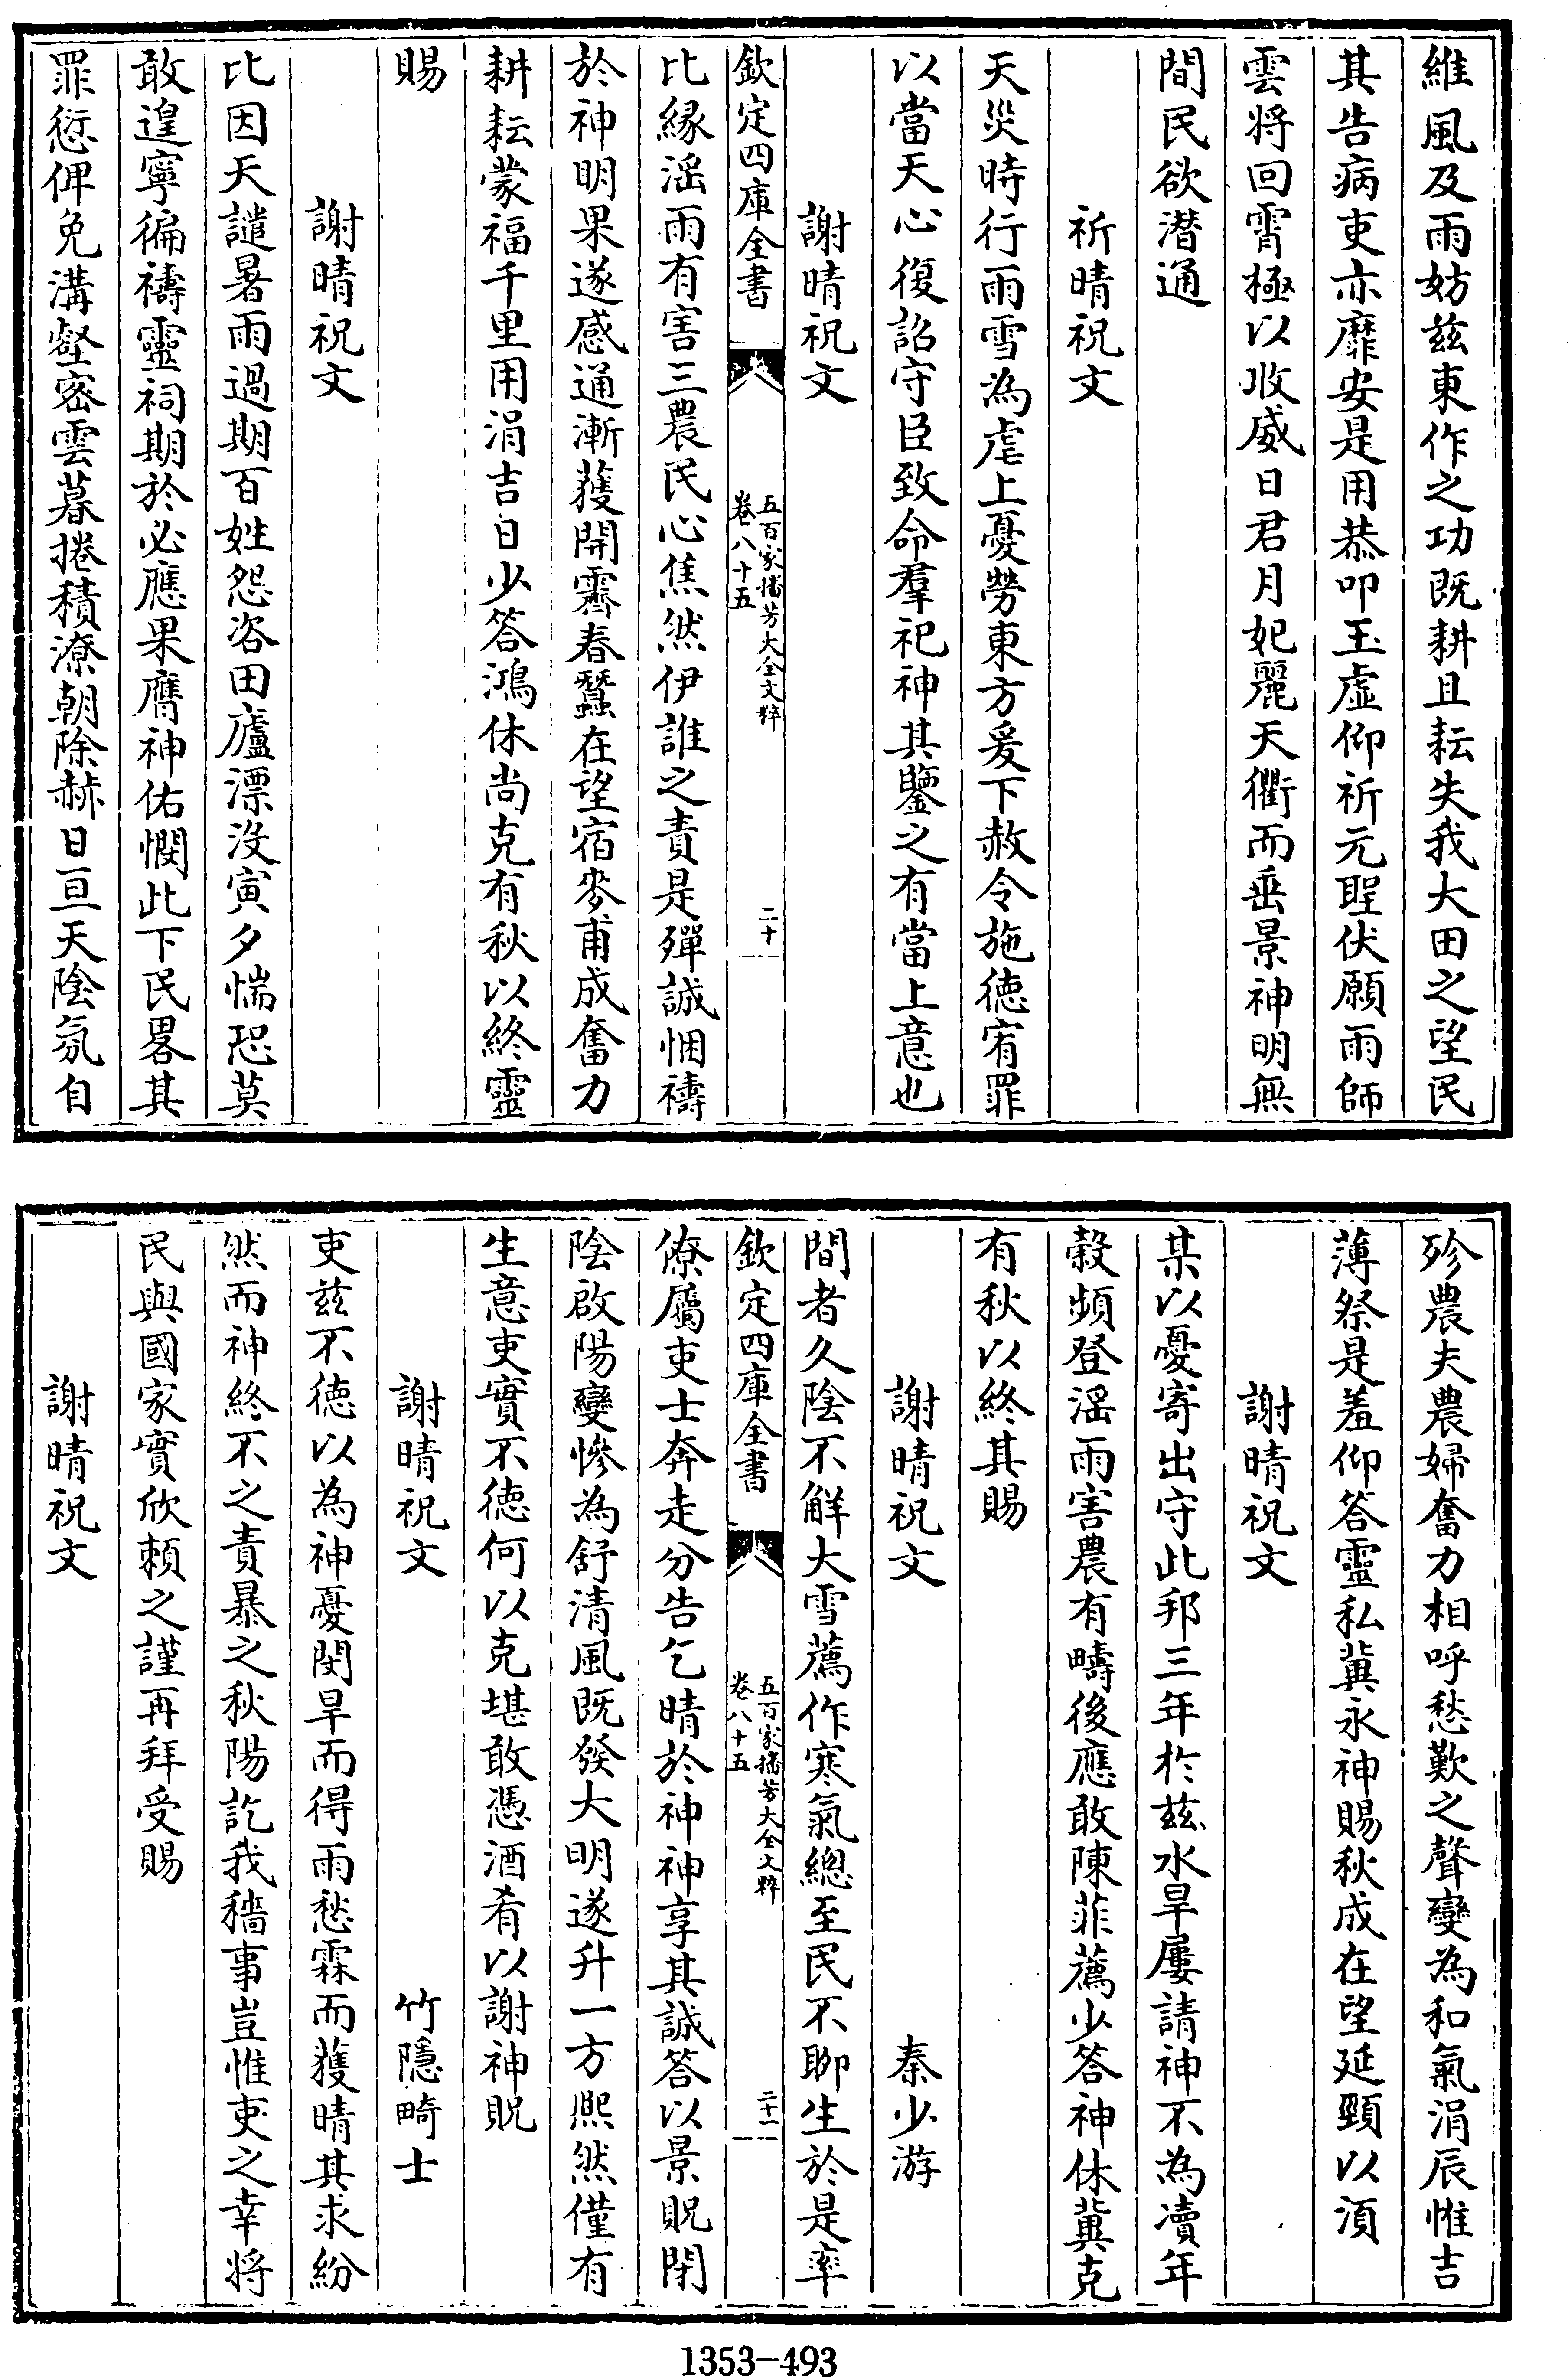 維風及雨妨兹東作之功既耕且耘失我大田之望民
其告病吏亦靡安是用恭叩玉虚仰祈元聖伏願雨師
雲将回霄極以收威日君月妃麗天衢而垂景神明無
間民欲潛通
祈晴祝文
天災時行雨雪為虐上憂勞東方爰下赦令施徳宥罪
以當天心復詔守臣致命羣祀神其鑒之有當上意也
謝晴祝文
欽定四庫全書
五百家播芳大全文粹
卷八十五
二十
比緣滛雨有害三農民心焦然伊誰之責是殫誠悃禱
於神明果遂感通漸獲開霽春蠶在望宿麥甫成奮力
耕耘蒙福千里用涓吉日少答鴻休尚克有秋以終靈
賜
謝晴祝文
比因天譴暑雨過期百姓怨咨田廬漂没寅夕惴恐莫
敢遑寧徧禱靈祠期於必應果膺神佑憫此下民畧其
罪愆俾免溝壑宻雲暮捲積潦朝除赫日亘天陰氛自
殄農夫農婦奮力相呼愁歎之聲變為和氣涓辰惟吉
薄祭是羞仰答靈私冀永神賜秋成在望延頸以須
謝晴祝文
某以憂寄出守此邦三年於兹水旱屢請神不為瀆年
榖頻登滛雨害農有疇後應敢陳菲薦少答神休冀克
有秋以終其賜
謝晴祝文
秦少游
間者久陰不解大雪薦作寒氣總至民不聊生於是率
欽定四庫全書
五百家播芳大全文粹
卷八十五
二十一
僚屬吏士奔走分告乞晴於神神享其誠答以景貺閉
陰啟陽變惨為舒清風既發大明遂升一方熙然僅有
生意吏實不徳何以克堪敢憑酒肴以謝神貺
謝晴祝文
竹隱畸士
吏兹不徳以為神憂閔旱而得雨愁霖而獲晴其求紛
然而神終不之責暴之秋陽訖我穡事豈惟吏之幸将
民與國家實欣頼之謹再拜受賜
謝晴祝文
1353-493